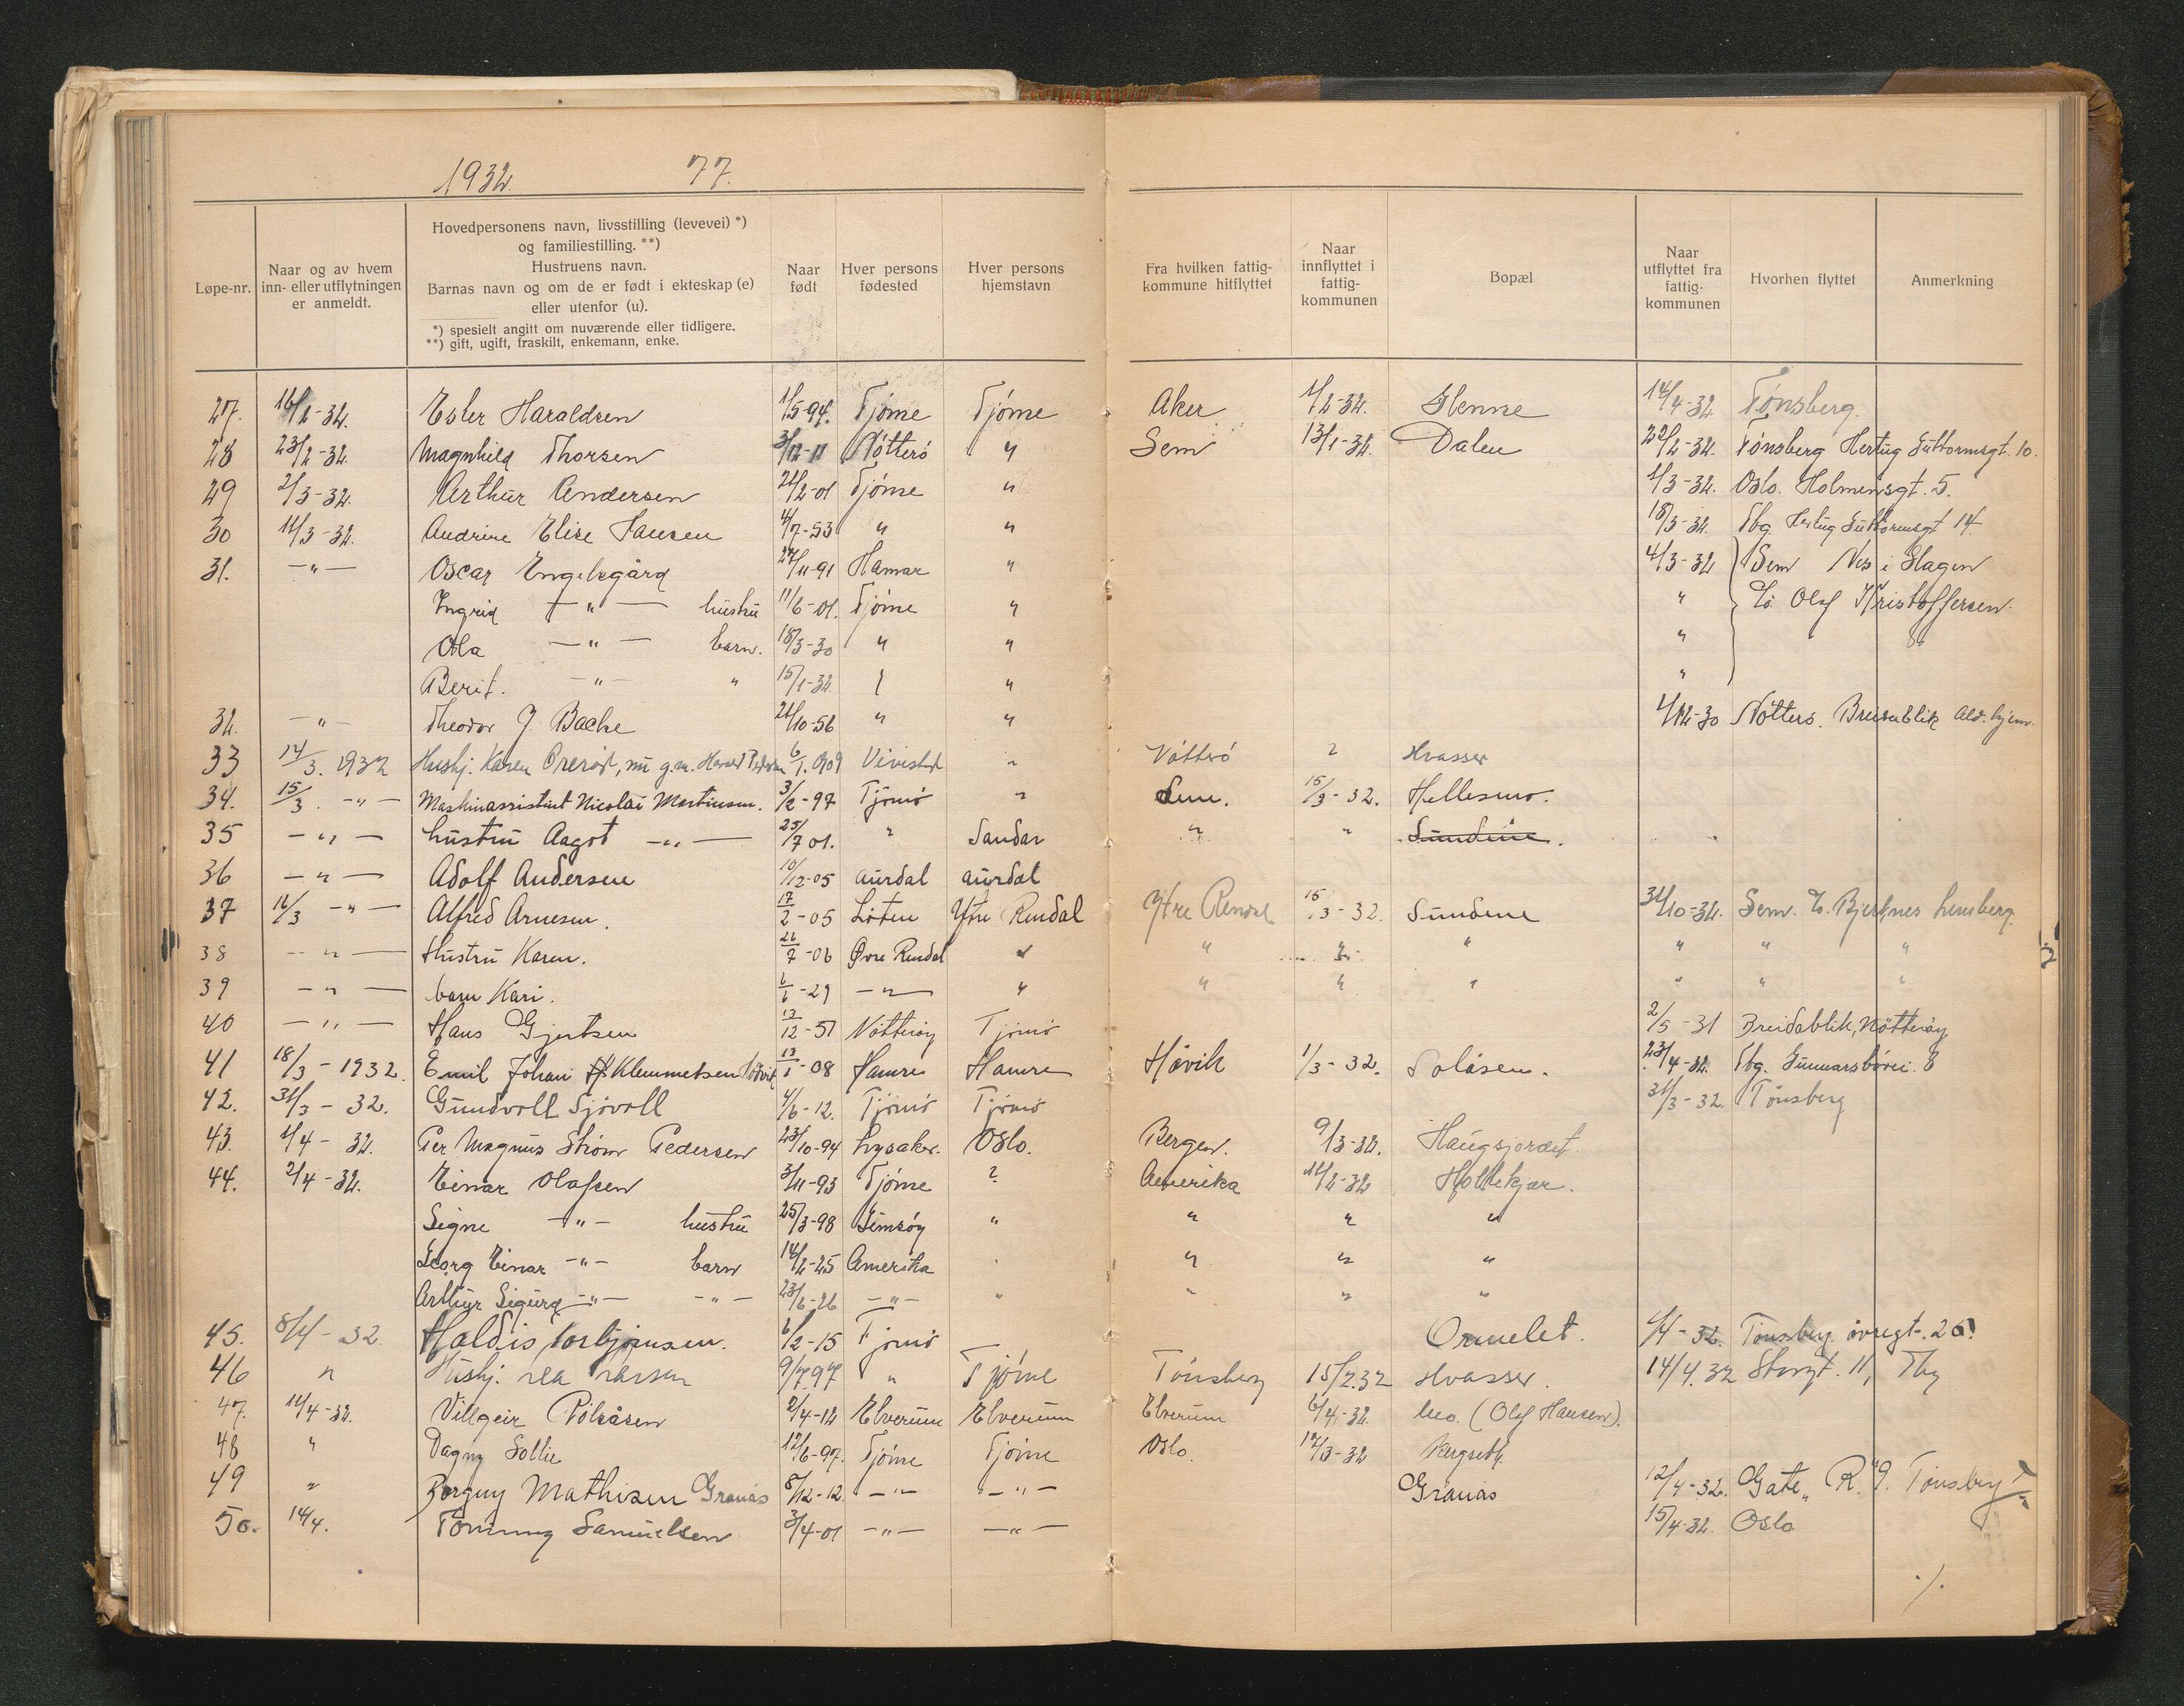 1932. 77.
Løpe-nr. | Naar og av hvem inn- eller utflytningen er anmeldt. | Hovedpersonens navn, livsstilling (levevei) *) og familiestilling. **) Hustruens navn. Barnas navn og om de er født i ekteskap (e) eller utenfor (u). *) spesielt angitt om nuværende eller tidligere. **) gift, ugift, fraskilt, enkemann, enke. | Naar født | Hver persons fødested | Hver persons hjemstavn | Fra hvilken fattig-kommune hitflyttet | Naar innflyttet i fattig-kommunen | Bopæl | Naar utflyttet fra fattig-kommunen | Hvorhen flyttet | Anmerkning
27. 16/2-32. Haraldsen 1/5-94. Tjøme Tjøme Aker 1/2-32. Glenne 14/4-32 Tønsberg.
28 23/2-32. Magnhild Thorsen 3/12-11 Nøtterö " Sem 13/1-32. Dalen 22/2-32. Tønsberg Hertug Guttormsgt. 10.
29 2/3-32. Arthur Andersen 21/2-01 Tjöme " 1/3-32. Oslo. Holmensgt. 5.
30 11/3-32. Andrine Elise Hansen 4/7-53 " " 18/3-32. Tbg. Hertug Guttormsgt 14.
31. -"- Oscar Engelsgård 27/11-91 Hamar " 4/3-32 Sem Nes i Slagen
Ingrid -"- hustru 11/6-01. Tjöme " " Olaf Kristoffersen.
Ola -"- barn. 18/3-30 " " "
Berit. -"- " 15/1-32. " "
32. -"- Theodor J. Bache 21/10-56 " " 1/12-30 Nötterö. Breidablik Ald. hjem
33 14/3. 1932 Hushj. Karen Örerød, nu g.m. Harald Pedersen 6/1. 1909 Vivestad " Nøtterö ? Hvasser
34. 15/3. -"- Maskinassistent Nicolai Martinsen. 3/2-97 Tjømö " Sem. 15/3-32. Hellesmo.
35 -"- hustru Aagot -"- 25/7 01. " Sandar " " Sundene.
36 -"- Adolf Andersen 10/12-05 Aurdal Aurdal
37 16/3 -"- Alfred Arnesen. 17/2-05 Löten Ytre Rendal Ytre Rendal 15/3-32. Sundene 31/10-32. Sem. Bjerknes
38 -"- Hustru Karen. 26/7-06 Øvre Rendal " " " " " " "
39 -"- barn Kari. 6/6-29 -"- " " " " " " "
40 -"- Hans Gjertsen 13/12-51 Nøtteröy Tjömö 2/5-31 Breidablik, Nötteröy
41 18/3-1932. Emil Johan Klemmetsen 13/1-08 Hamre Hamre Håvik 1/3-32. Solåsen. 23/4-32. Tbg. Gunnarsbövei. 8
42. 31/3-32. Gundvoll Sjövoll 4/6-12. Tjömö Tjömö 31/3-32. Tönsberg
43. 1/4-32. Per Magnus Ström Pedersen 23/10-94 Lysaker. Oslo. Bergen. 9/3-32. Haugsjordet.
44. 2/4-32. Einar Olafsen 3/11-93 Tjöme ? Amerika 11/2-32 Holtekjær.
Signe -"- hustru 25/3-98 Gimsöy " " " "
Georg Einar -"- barn 14/2-25 Amerika " " " "
Arthur Sigurd -"- -"- 23/6-26 -"- " " " "
45. 8/4-32. Haldis Torbjørnsen. 6/2-15 Tjömö Ormelet. 1/4-32. Tønsberg övregt. 26.
46 " Hushj. Larsen 9/7.97 " Tjöme Tönsberg 15/2.32 Hvasser. 14/4.32 Storgt. 11, Tbg
47. 11/4-32. Villgeir 2/4-12 Elverum Elverum Elverum 6/4-32. Mo. (Olaf Hansen).
48 " Dagny Sollie 12/6-97. Tjöme Tjöme Oslo. 17/3-32
49 " Borguy Mathisen Granås 8/12-12. -"- -"- Granås 12/4-32. Gate "R" 9. Tønsberg
50. 14/4. Tommy Samuelsen 3/4-01 -"- -"- 15/4-32. Oslo
./.